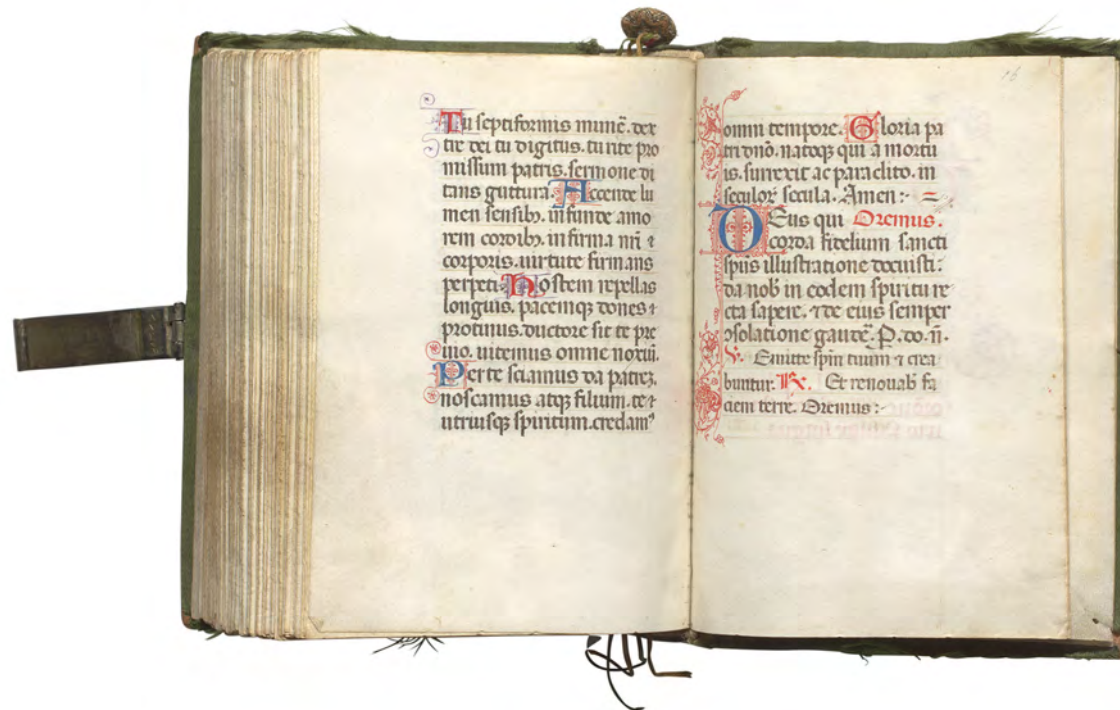 Tu septiformis munē. dex
tre dei tu digitus. tu rite pro
missum patris. sermone di
tans guttura. Accende lu
men sensibꝫ. infunde amo
rem cordibꝫ. infirma nr̄i ⁊
corporis. uirtute firmans
perpeti. Hostem repellas
longius. pacemqꝫ dones ⁊
protinus. ductore sit te pre
uio. uitemus omne noxiū.
Per te sciamus da patreꝫ.
noscamus atqꝫ filium. te ⁊
utriusqꝫ spiritum. credamꝰ
omni tempore. Gloria pa
tri dnō. natoqꝫ qui a mortu
is. surrexit ac paraclito. in
seculoꝝ secula. Amen :-
DEus qui Oremus.
corda fidelium sancti
spūs illustratione docuisti:
da nob in eodem spiritu re
cta sapere. ⁊ de eius semper
ↄsolatione gaudē. P. do. n̄.
V. Emitte spm̄ tuum ⁊ crea
buntur. R. Et renouab fa
ciem terre. Oremus :-